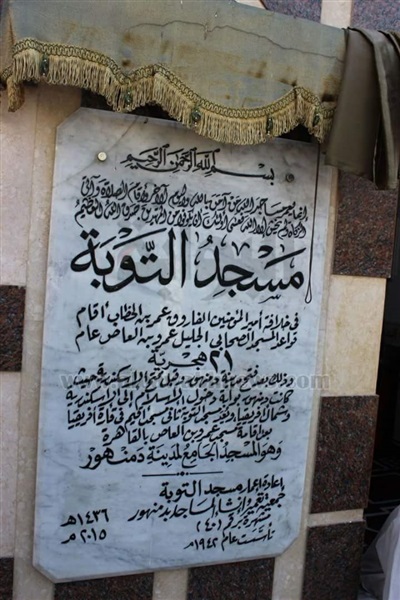 بسم الله الرحمن الرحيم
إنما يعمر مساجد الله من آمن بالله واليوم الآخر وأقام الصلاة وآتى
الزكاة ولم يخش إلا الله فعسى أولئك أن يكونوا من المهتدين صدق الله العظيم
مسجد التوبة
في خلافة أمير المؤمنين الفاروق عمر بن الخطاب أقام
قواعد المسجد الصحابي الجليل عمرو بن العاص عام
٢١ هجرية
وذلك بعد فتح مدينة دمنهور وقبل فتح الإسكندرية حيث
كانت دمنهور بوابة دخول الإسلام إلى الإسكندرية
وشمال أفريقيا ويعتبر مسجد التوبة ثاني مسجد أقيم في قارة أفريقيا
بعد إقامة مسجد عمرو بن العاص بالقاهرة
وهو المسجد الجامع لمدينة دمنهور
بإعادة إعمار مسجد التوبة
جمعية تعمير وإنشاء المساجد بدمنهور
مشهرة برقم (٤٠)
تأسست عام ١٩٤٢م
١٤٣٦هـ
٢٠١٥م